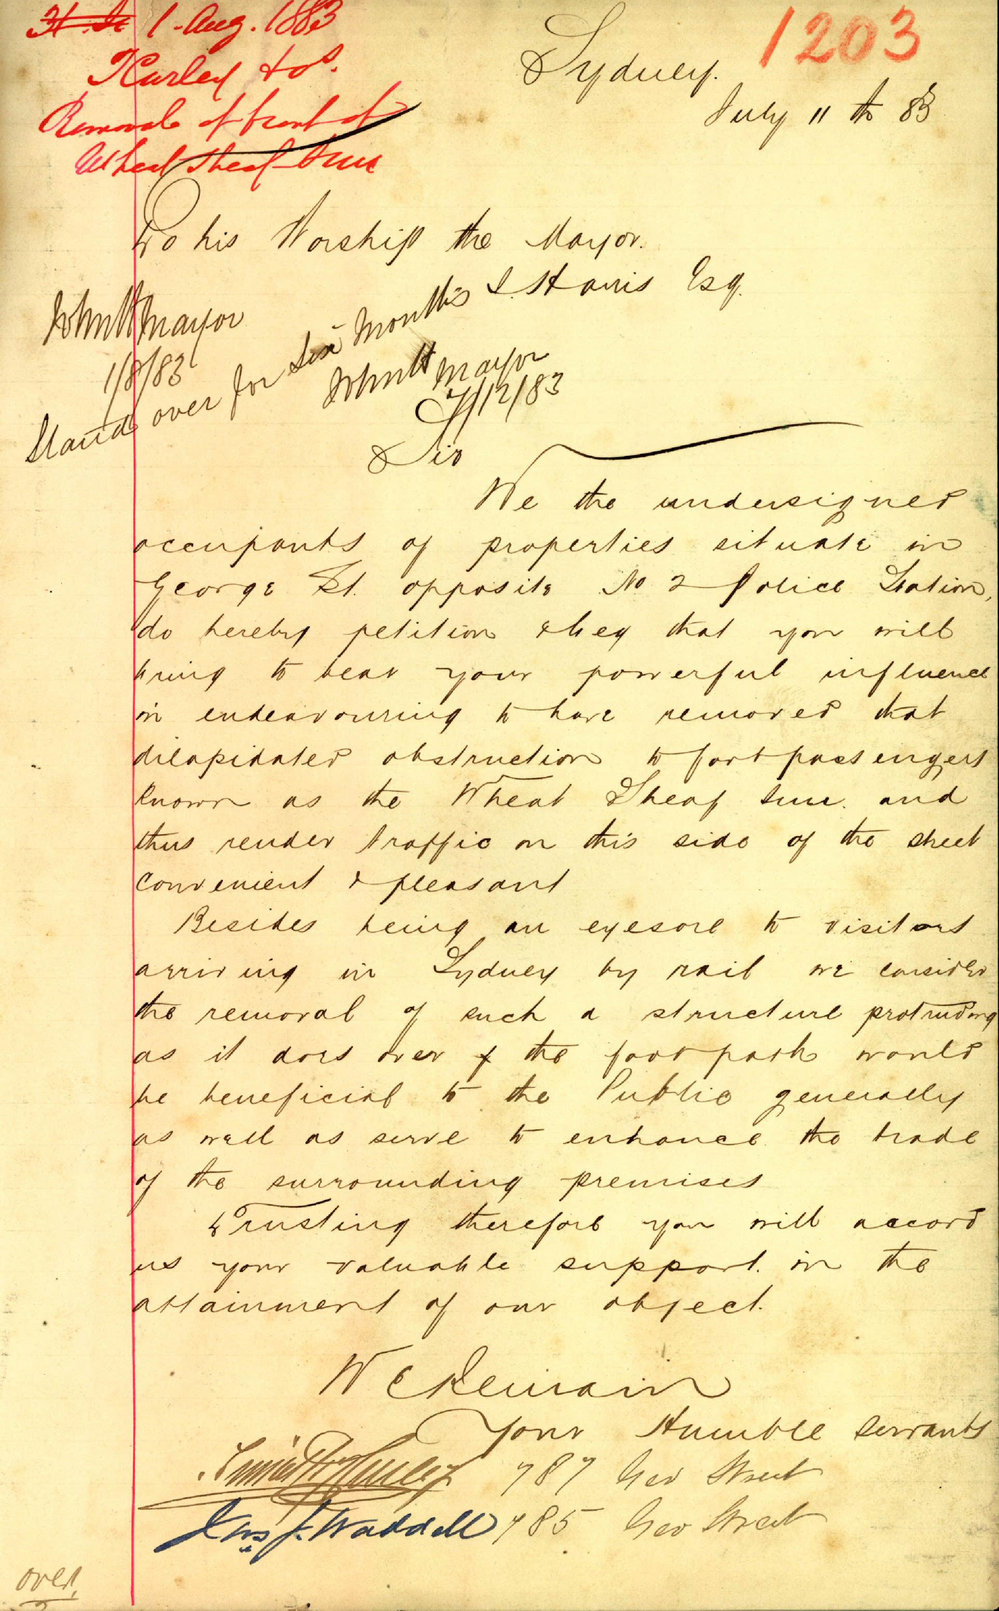 1 Aug. 1883
Hurley & os.
Removal of front of
Wheat Sheaf Inn
1203
Sydney.
July 11 th 83
To his Worship the Mayor.
J. Harris Esq.
John H Mayor
1/8/83
Stand over for Six Months
John H Mayor
7/12/83
Sir
We the undersigned
occupants of properties situate in
George St. opposite No 2 Police Station,
do hereby petition & beg that you will
bring to bear your powerful influence
in endeavouring to have removed that
dilapidated obstruction to foot passengers
known as the Wheat Sheaf Inn. and
thus render traffic on this side of the street
convenient & pleasant
Besides being an eyesore to visitors
arriving in Sydney by rail we consider
the removal of such a structure protruding
as it does over the foot path would
be beneficial to the Public generally
as well as serve to enhance the trade
of the surrounding premises
Trusting therefore you will accord
us your valuable support. in the
attainment of our object.
We Remain
Your Humble Servants
Hurley 787 Geo Street
Jas J. Waddell 785 Geo Street
over,